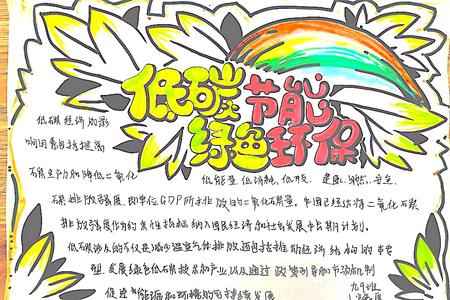 低碳 节能
绿色 环保
低碳经济的影
响因素包括提高
低能量、低消耗、低开
健康、自然、安全
碳排放强度,即单位GDP所产排放的二氧化碳量,中国已经将二氧化碳
排放强度作为约束性指标纳入国民经济和社会发展中长期计划。
低碳涉及的不仅是减少温室气体排放还包括推动经济结构的转
型、发展绿色低碳技术和产业以及通过政策引导和市场机制
促进能源和环境的可持续发展
九9班